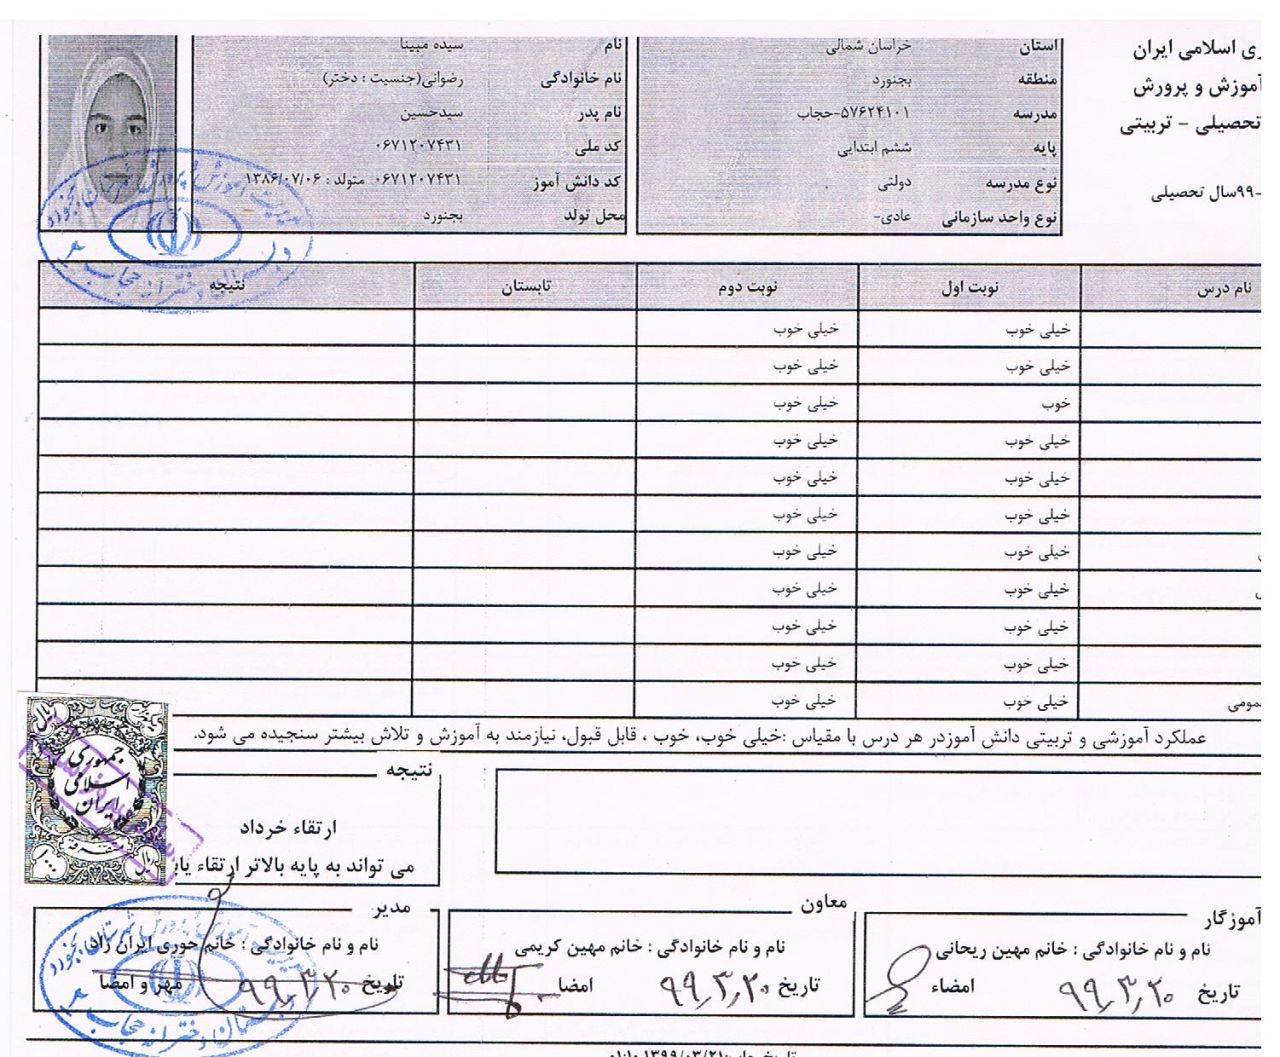 ری اسلامی ایران
آموزش و پرورش
تحصیلی - تربیتی
-۹۹سال تحصیلی
استان خراسان شمالی
منطقه بجنورد
مدرسه ۵۷۶۲۴۱۰۱-حجاب
پایه ششم ابتدایی
نوع مدرسه دولتی
نوع واحد سازمانی عادی-
نام سیده مبینا
نام خانوادگی رضوانی(جنسیت : دختر)
نام پدر سیدحسین
کد ملی ۰۶۷۱۲۰۷۴۳۱
کد دانش آموز ۰۶۷۱۲۰۷۴۳۱ متولد : ۱۳۸۶/۰۷/۰۶
محل تولد بجنورد
مدیریت آموزش و پرورش شهرستان بجنورد
دبستان دخترانه حجاب
نام درس نوبت اول نوبت دوم تابستان نتیجه
خیلی خوب خیلی خوب
خیلی خوب خیلی خوب
خوب خیلی خوب
خیلی خوب خیلی خوب
خیلی خوب خیلی خوب
خیلی خوب خیلی خوب
خیلی خوب خیلی خوب
خیلی خوب خیلی خوب
خیلی خوب خیلی خوب
خیلی خوب خیلی خوب
عمومی خیلی خوب خیلی خوب
عملکرد آموزشی و تربیتی دانش آموزدر هر درس با مقیاس :خیلی خوب، خوب ، قابل قبول، نیازمند به آموزش و تلاش بیشتر سنجیده می شود.
نتیجه
ارتقاء خرداد
می تواند به پایه بالاتر ارتقاء یابد
جمهوری
اسلامی
ایران
آموزگار
نام و نام خانوادگی : خانم مهین ریحانی
تاریخ ۹۹,۳,۲۰ امضاء
معاون
نام و نام خانوادگی : خانم مهین کریمی
تاریخ ۹۹,۳,۲۰ امضا
مدیر
نام و نام خانوادگی : خانم حوری ایران زاد
تاریخ ۹۹,۳,۲۰ مهر و امضا
مدیریت آموزش و پرورش شهرستان بجنورد
دبستان دخترانه حجاب